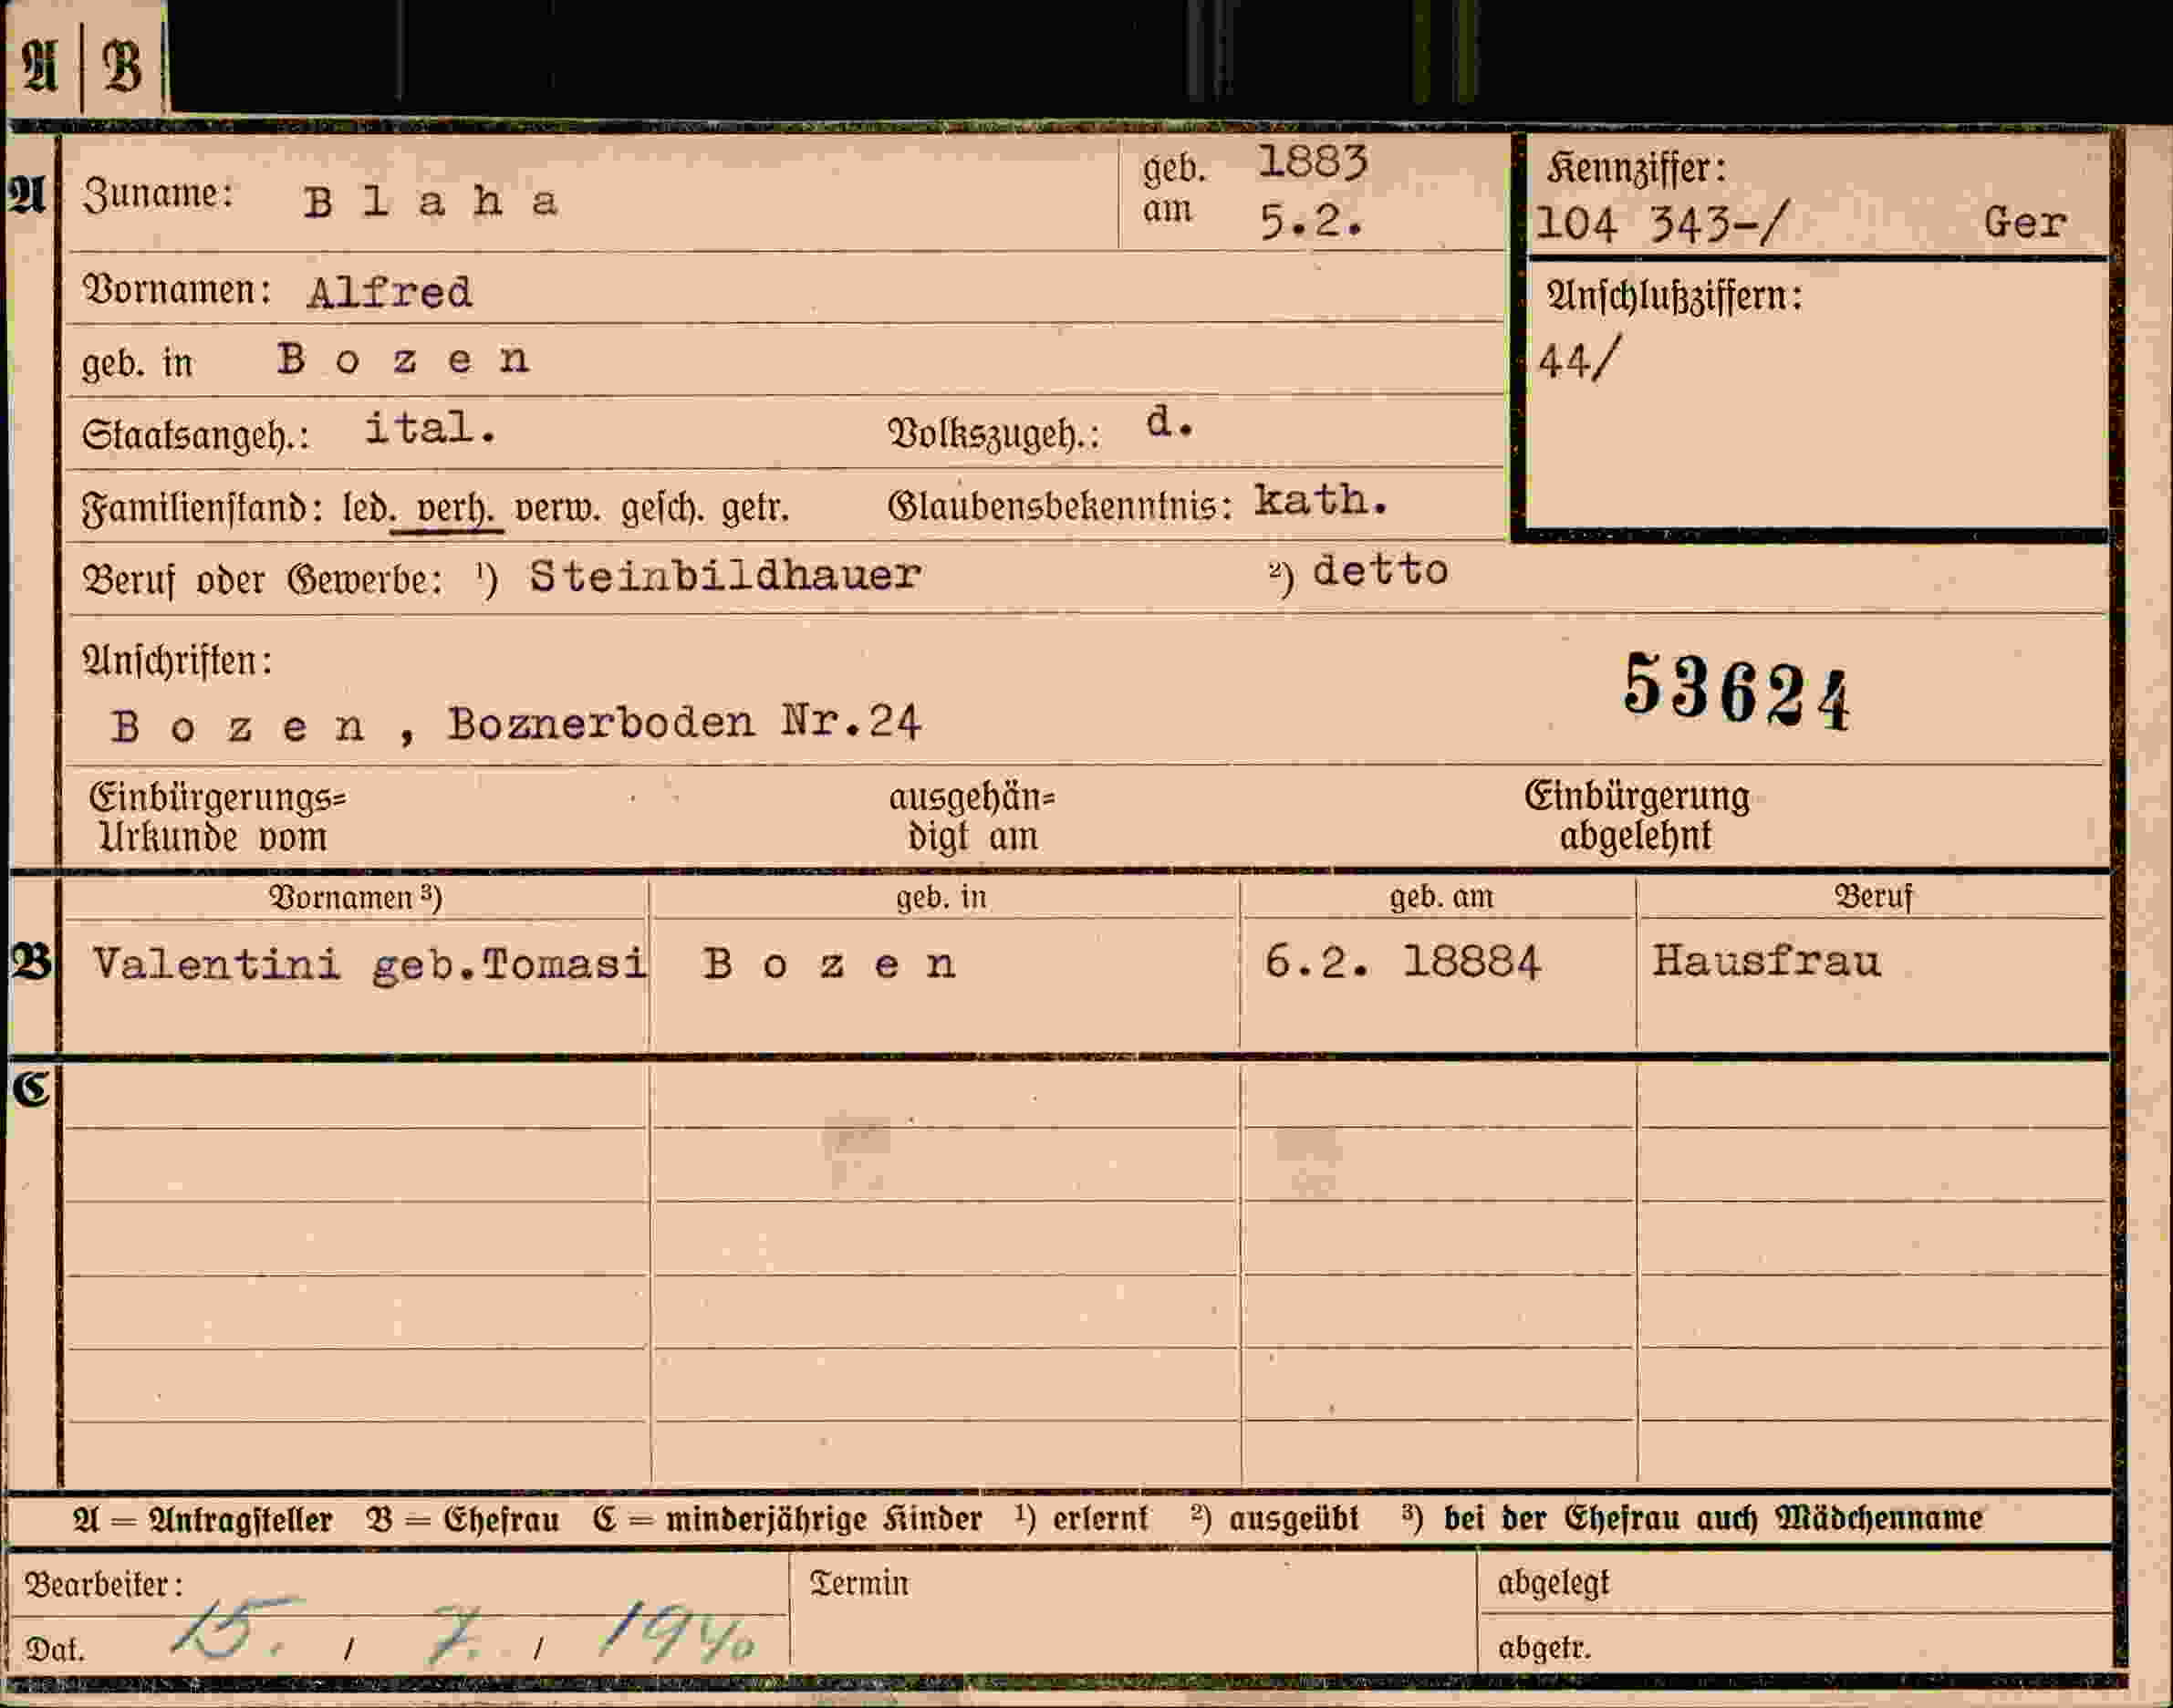 A | B
A Zuname: B l a h a geb. am 1883 5.2. Kennziffer:
104 343-/ Ger
Vornamen: Alfred Anschlußziffern:
44/
geb. in B o z e n
Staatsangeh.: ital. Volkszugeh.: d.
Familienstand: led. verh. verw. gesch. getr. Glaubensbekenntnis: kath.
Beruf oder Gewerbe: ¹) Steinbildhauer ²) detto
Anschriften:
53624
B o z e n , Boznerboden Nr.24
Einbürgerungs= ausgehän= Einbürgerung
Urkunde vom digt am abgelehnt
Vornamen ³) geb. in geb. am Beruf
B Valentini geb.Tomasi B o z e n 6.2. 18884 Hausfrau
C
A = Antragsteller B = Ehefrau C = minderjährige Kinder ¹) erlernt ²) ausgeübt ³) bei der Ehefrau auch Mädchenname
Bearbeiter: Termin abgelegt
Dat. 15. / 7. / 1940 abgetr.